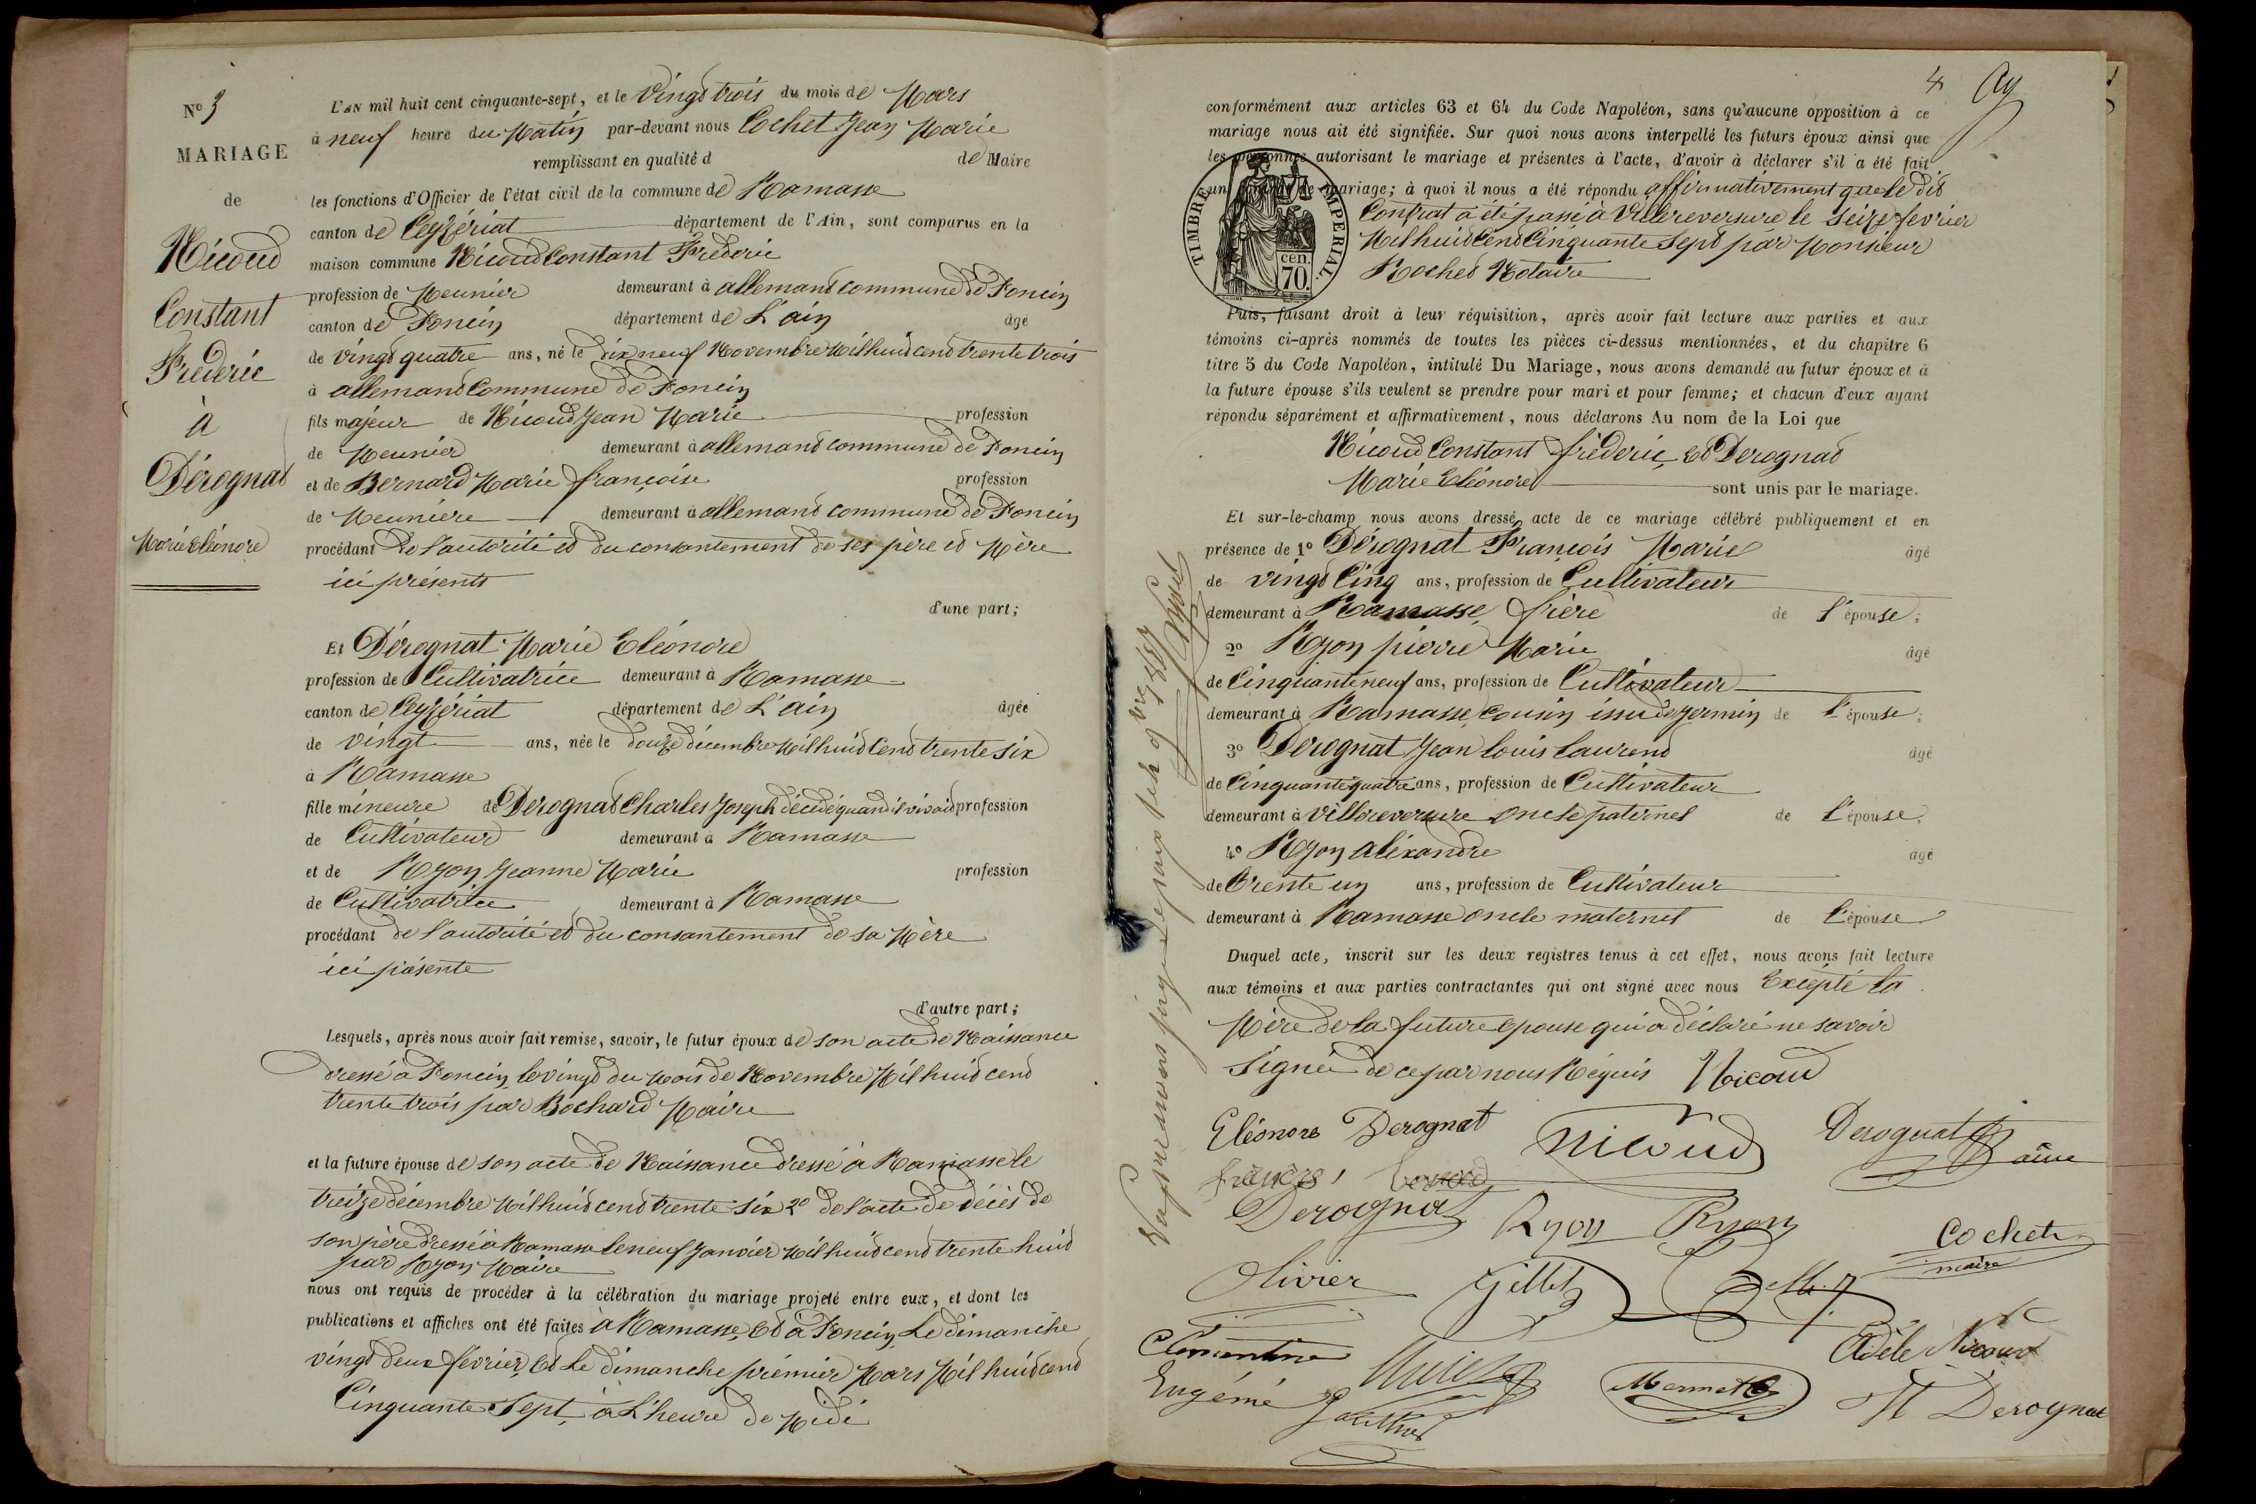 N° 3
MARIAGE
de
Nicoud
Constant
Fréderic
à
Dérognat
Marie Eléonore
L'AN mil huit cent cinquante-sept, et le vingt trois du mois de Mars
à neuf heure du Matin par-devant nous Cochet Jean Marie
remplissant en qualité d de Maire
les fonctions d'Officier de l'état civil de la commune de Ramasse
canton de Ceyzériat département de l'Ain, sont comparus en la
maison commune Nicoud Constant Fréderic
profession de Meunier demeurant à allemand commune de Poncin
canton de Poncin département de L'ain âgé
de vingt quatre ans, né le dix neuf Novembre Mil huit cend trente trois
à allemand Commune de Poncin
fils majeur de Nicoud Jean Marie profession
de Meunier demeurant à allemand commune de Poncin
et de Bernard Marie françoise profession
de Meuniere demeurant à allemand commune de Poncin
procédant de l'autorité et du consantement de ses père et Mère
ici présents
d'une part;
Et Dérognat Marie Eléonore
profession de Cultivatrice demeurant à Ramasse
canton de Ceyzériat département de L'ain âgée
de vingt ans, née le douze décembre Mil huit Cend trente six
à Ramasse
fille mineure de Derognat Charles Joseph décédé quand il vivait profession
de Cultivateur demeurant à Ramasse
et de Ryon Jeanne Marie profession
de Cultivatrice demeurant à Ramasse
procédant de l'autorité et du consantement de sa Mère
ici présente
d'autre part;
Lesquels, après nous avoir fait remise, savoir, le futur époux de son acte de Naissance
dressé à Poncin le vingt du Mois de Novembre Mil huit cend
trente trois par Bochard Maire
et la future épouse de son acte de Naissance dressé à Ramasse le
treize décembre Mil huit cend trente six 2° de l'acte de décès de
son père dressé à Ramasse le neuf Janvier Mil huit cend trente huit
par Ryon Maire
nous ont requis de procéder à la célébration du mariage projeté entre eux, et dont les
publications et affiches ont été faites à Ramasse, Et à Poncin Le dimanche
vingt deux février, Et Le dimanche prémier Mars Mil huit cend
Cinquante Sept, à L'heure de Midi
4
conformément aux articles 63 et 64 du Code Napoléon, sans qu'aucune opposition à ce
mariage nous ait été signifiée. Sur quoi nous avons interpellé les futurs époux ainsi que
les personnes autorisant le mariage et présentes à l'acte, d'avoir à déclarer s'il a été fait
un de mariage; à quoi il nous a été répondu affirmativement que le dit
Contrat a été passé à Villereversure le seize fevrier
Mil huit Cend Cinquante Sept par Monsieur
Rochet Notaire
TIMBRE IMPERIAL
cen. 70.
Puis, faisant droit à leur réquisition, après avoir fait lecture aux parties et aux
témoins ci-après nommés de toutes les pièces ci-dessus mentionnées, et du chapitre 6
titre 5 du Code Napoléon, intitulé Du Mariage, nous avons demandé au futur époux et à
la future épouse s'ils veulent se prendre pour mari et pour femme; et chacun d'eux ayant
répondu séparément et affirmativement, nous déclarons Au nom de la Loi que
Nicoud Constant fréderic, Et Derognat
Marie Eléonore sont unis par le mariage.
Et sur-le-champ nous avons dressé acte de ce mariage célébré publiquement et en
présence de 1° Dérognat François Marie âgé
de vingt Cinq ans, profession de Cultivateur
demeurant à Ramasse, frère de l'épouse;
2° Ryon pierre Marie âgé
de Cinquante neuf ans, profession de Cultivateur
demeurant à Ramasse, Cousin issu de germin de l'épouse;
3° Derognat Jean Louis Laurend âgé
de Cinquante quatre ans, profession de Cultivateur
demeurant à Villereversure oncle paternel de l'épouse.
4° Ryon aléxandre âgé
de trente un ans, profession de Cultivateur
demeurant à Ramasse oncle maternel de l'épouse
Duquel acte, inscrit sur les deux registres tenus à cet effet, nous avons fait lecture
aux témoins et aux parties contractantes qui ont signé avec nous Excépté la
Mère de la future épouse qui a déclaré ne savoir
Signer de ce par nous Réquis Nicoud
Eléonore Derognat nicoud Derognat aîné
Derognat Ryon Ryon Cochet
maire
Olivier Gillet
Clementine Adèle Nicoud
Eugéné Mermet M Derognat